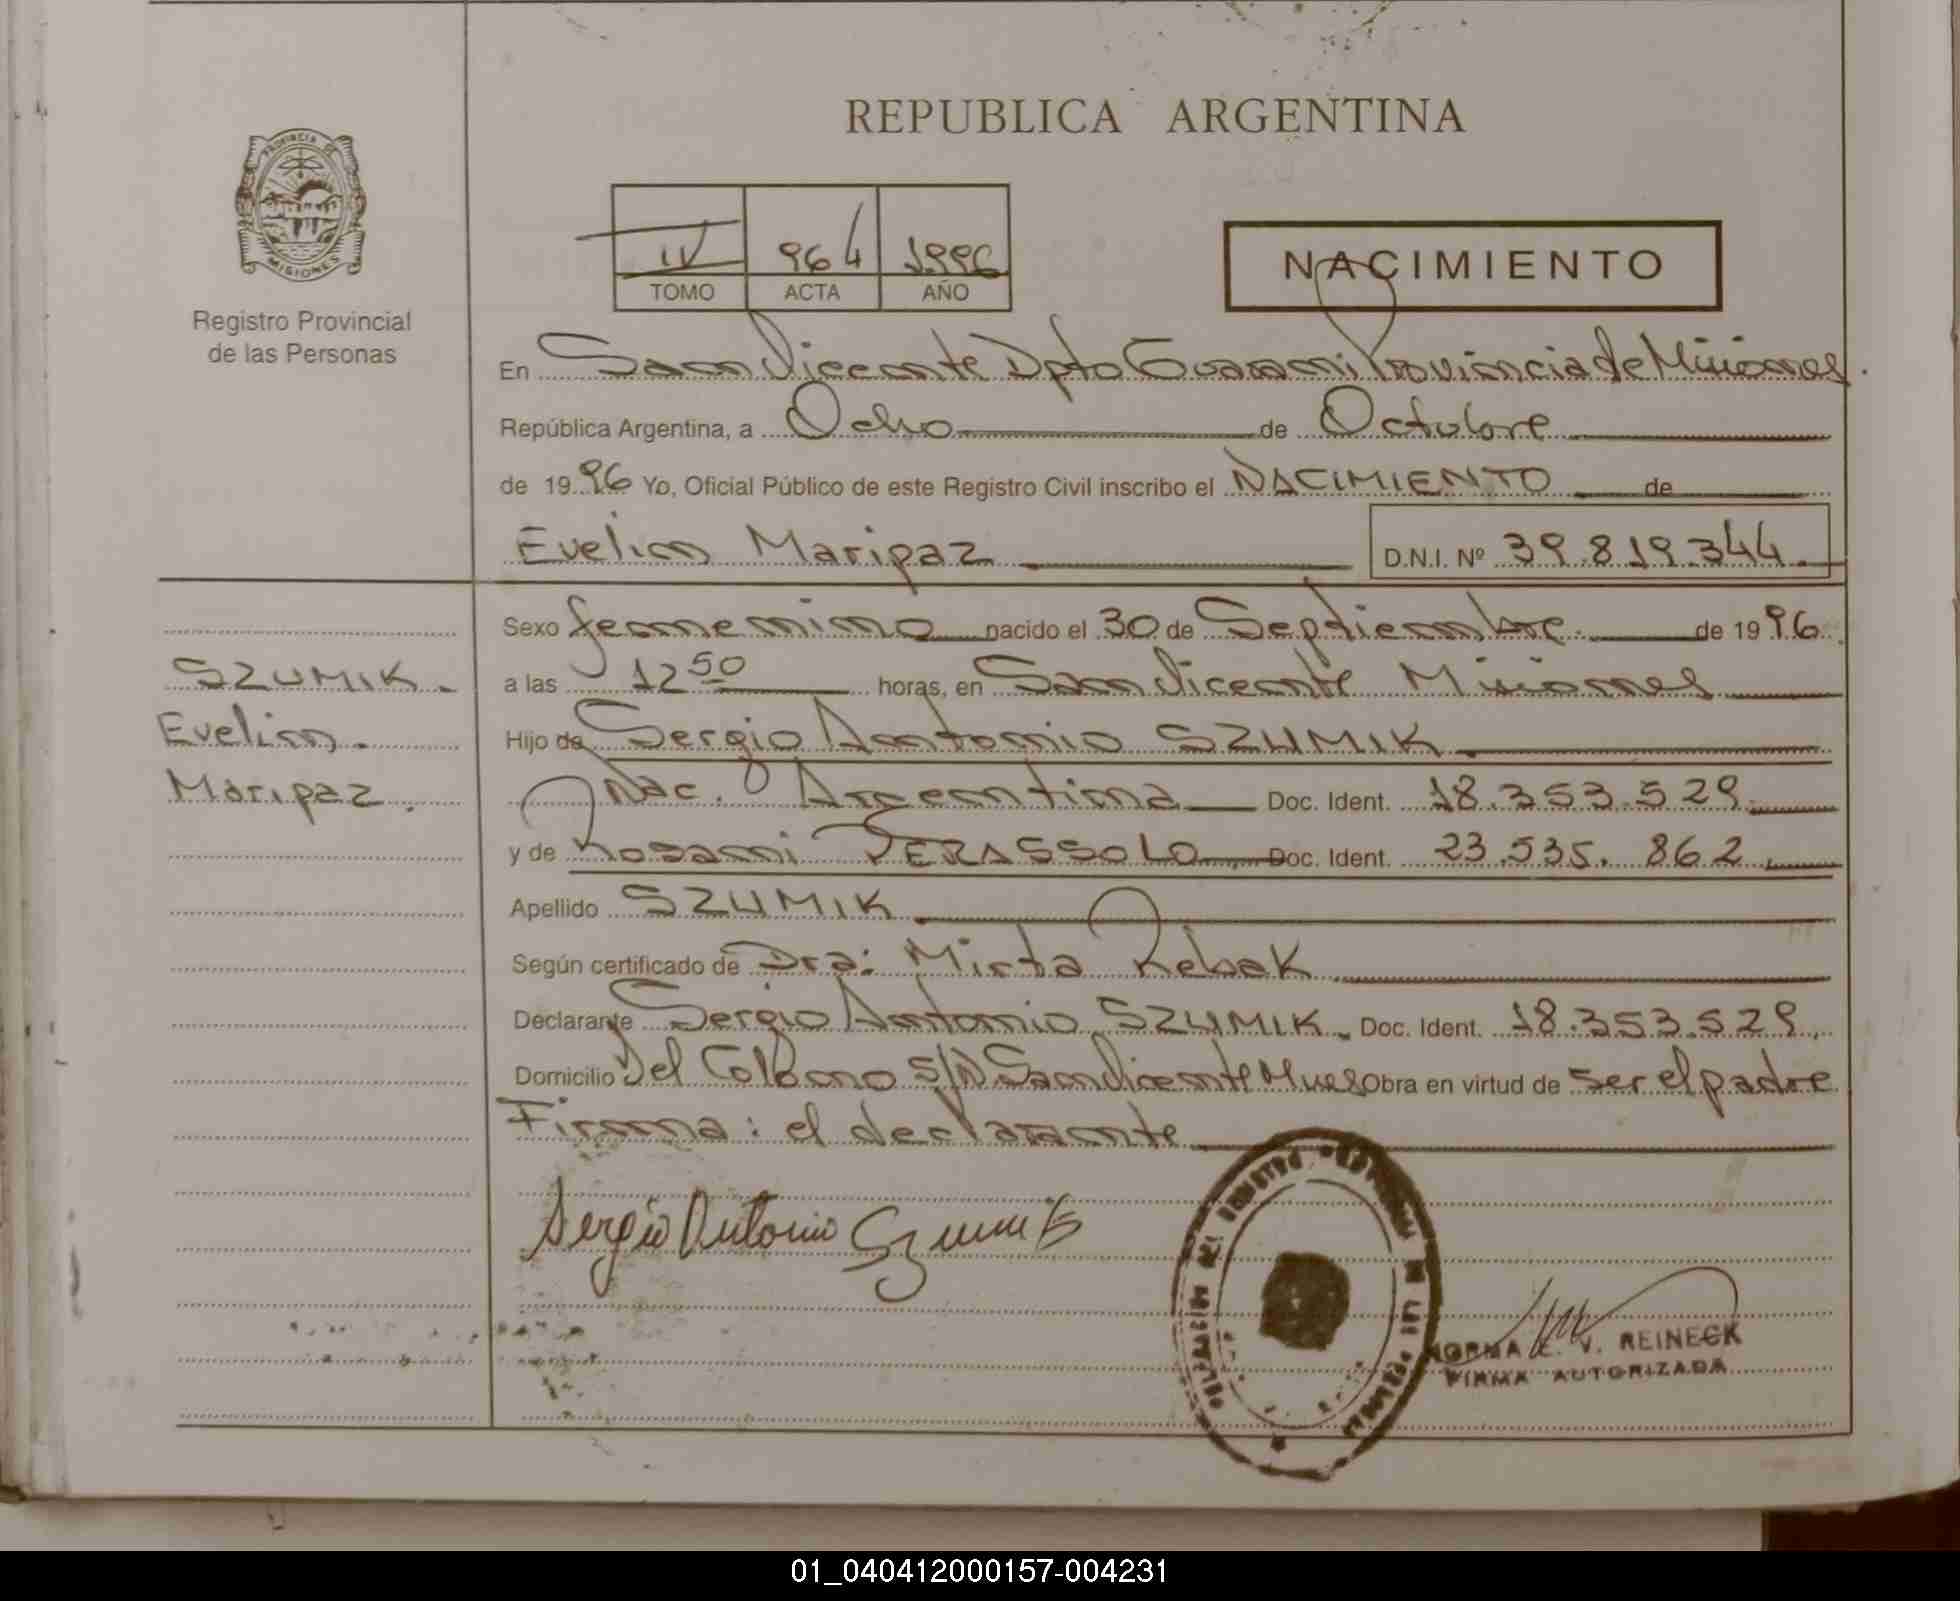 REPUBLICA ARGENTINA
PROVINCIA DE
MISIONES
Registro Provincial
de las Personas
IV 964 1996
TOMO ACTA AÑO
NACIMIENTO
En San Vicente Dpto Guarani Provincia de Misiones.
República Argentina, a Ocho de Octubre
de 1996 Yo, Oficial Público de este Registro Civil inscribo el NACIMIENTO de
Evelin Maripaz D.N.I. Nº 39.819.344
Sexo femenino nacido el 30 de Septiembre de 1996
SZUMIK
Evelin
Maripaz
a las 12 50 horas, en San Vicente Misiones
Hijo de Sergio Antonio SZUMIK
Nac. Argentina Doc. Ident. 18.353.529
y de Rosani PERASSOLO Doc. Ident. 23.535.862
Apellido SZUMIK
Según certificado de Dra: Mirta Rebak
Declarante Sergio Antonio SZUMIK Doc. Ident. 18.353.529
Domicilio Del Colono S/N San Vicente Mnes Obra en virtud de ser el padre
Firma: el declarante
Sergio Antonio Szumik
NORMA E. V. REINECK
FIRMA AUTORIZADA
01_040412000157-004231